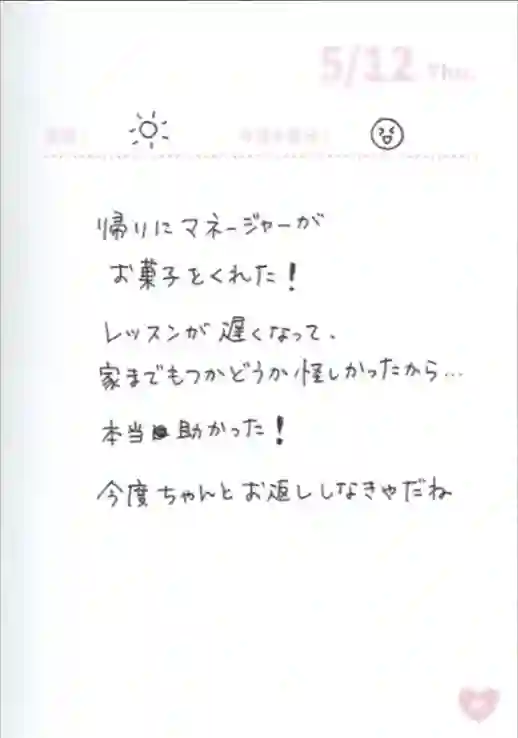 5/12 Thu.
帰りにマネージャーが
お菓子をくれた!
レッスンが遅くなって、
家までもつかどうか怪しかったから…
本当助かった!
今度ちゃんとお返ししなきゃだね